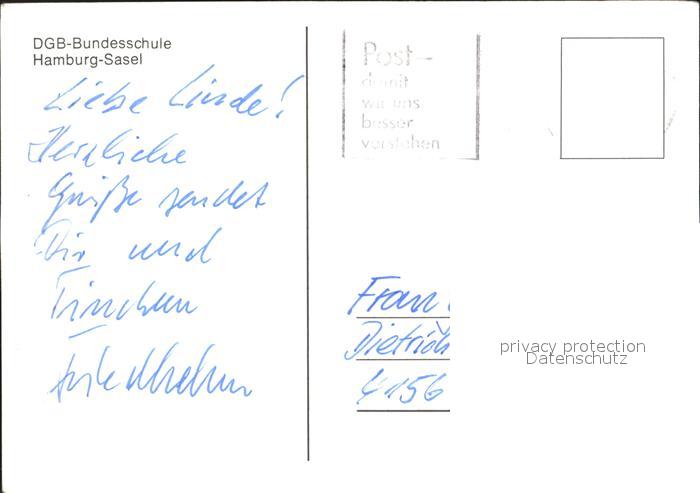 DGB-Bundesschule
Hamburg-Sasel
Liebe Linde!
Herzliche
Grüße sendet
Dir und
Tinchen
Friedhelm
Post–
damit
wir uns
besser
verstehen
Frau
Dietrich
4156
privacy protection
Datenschutz